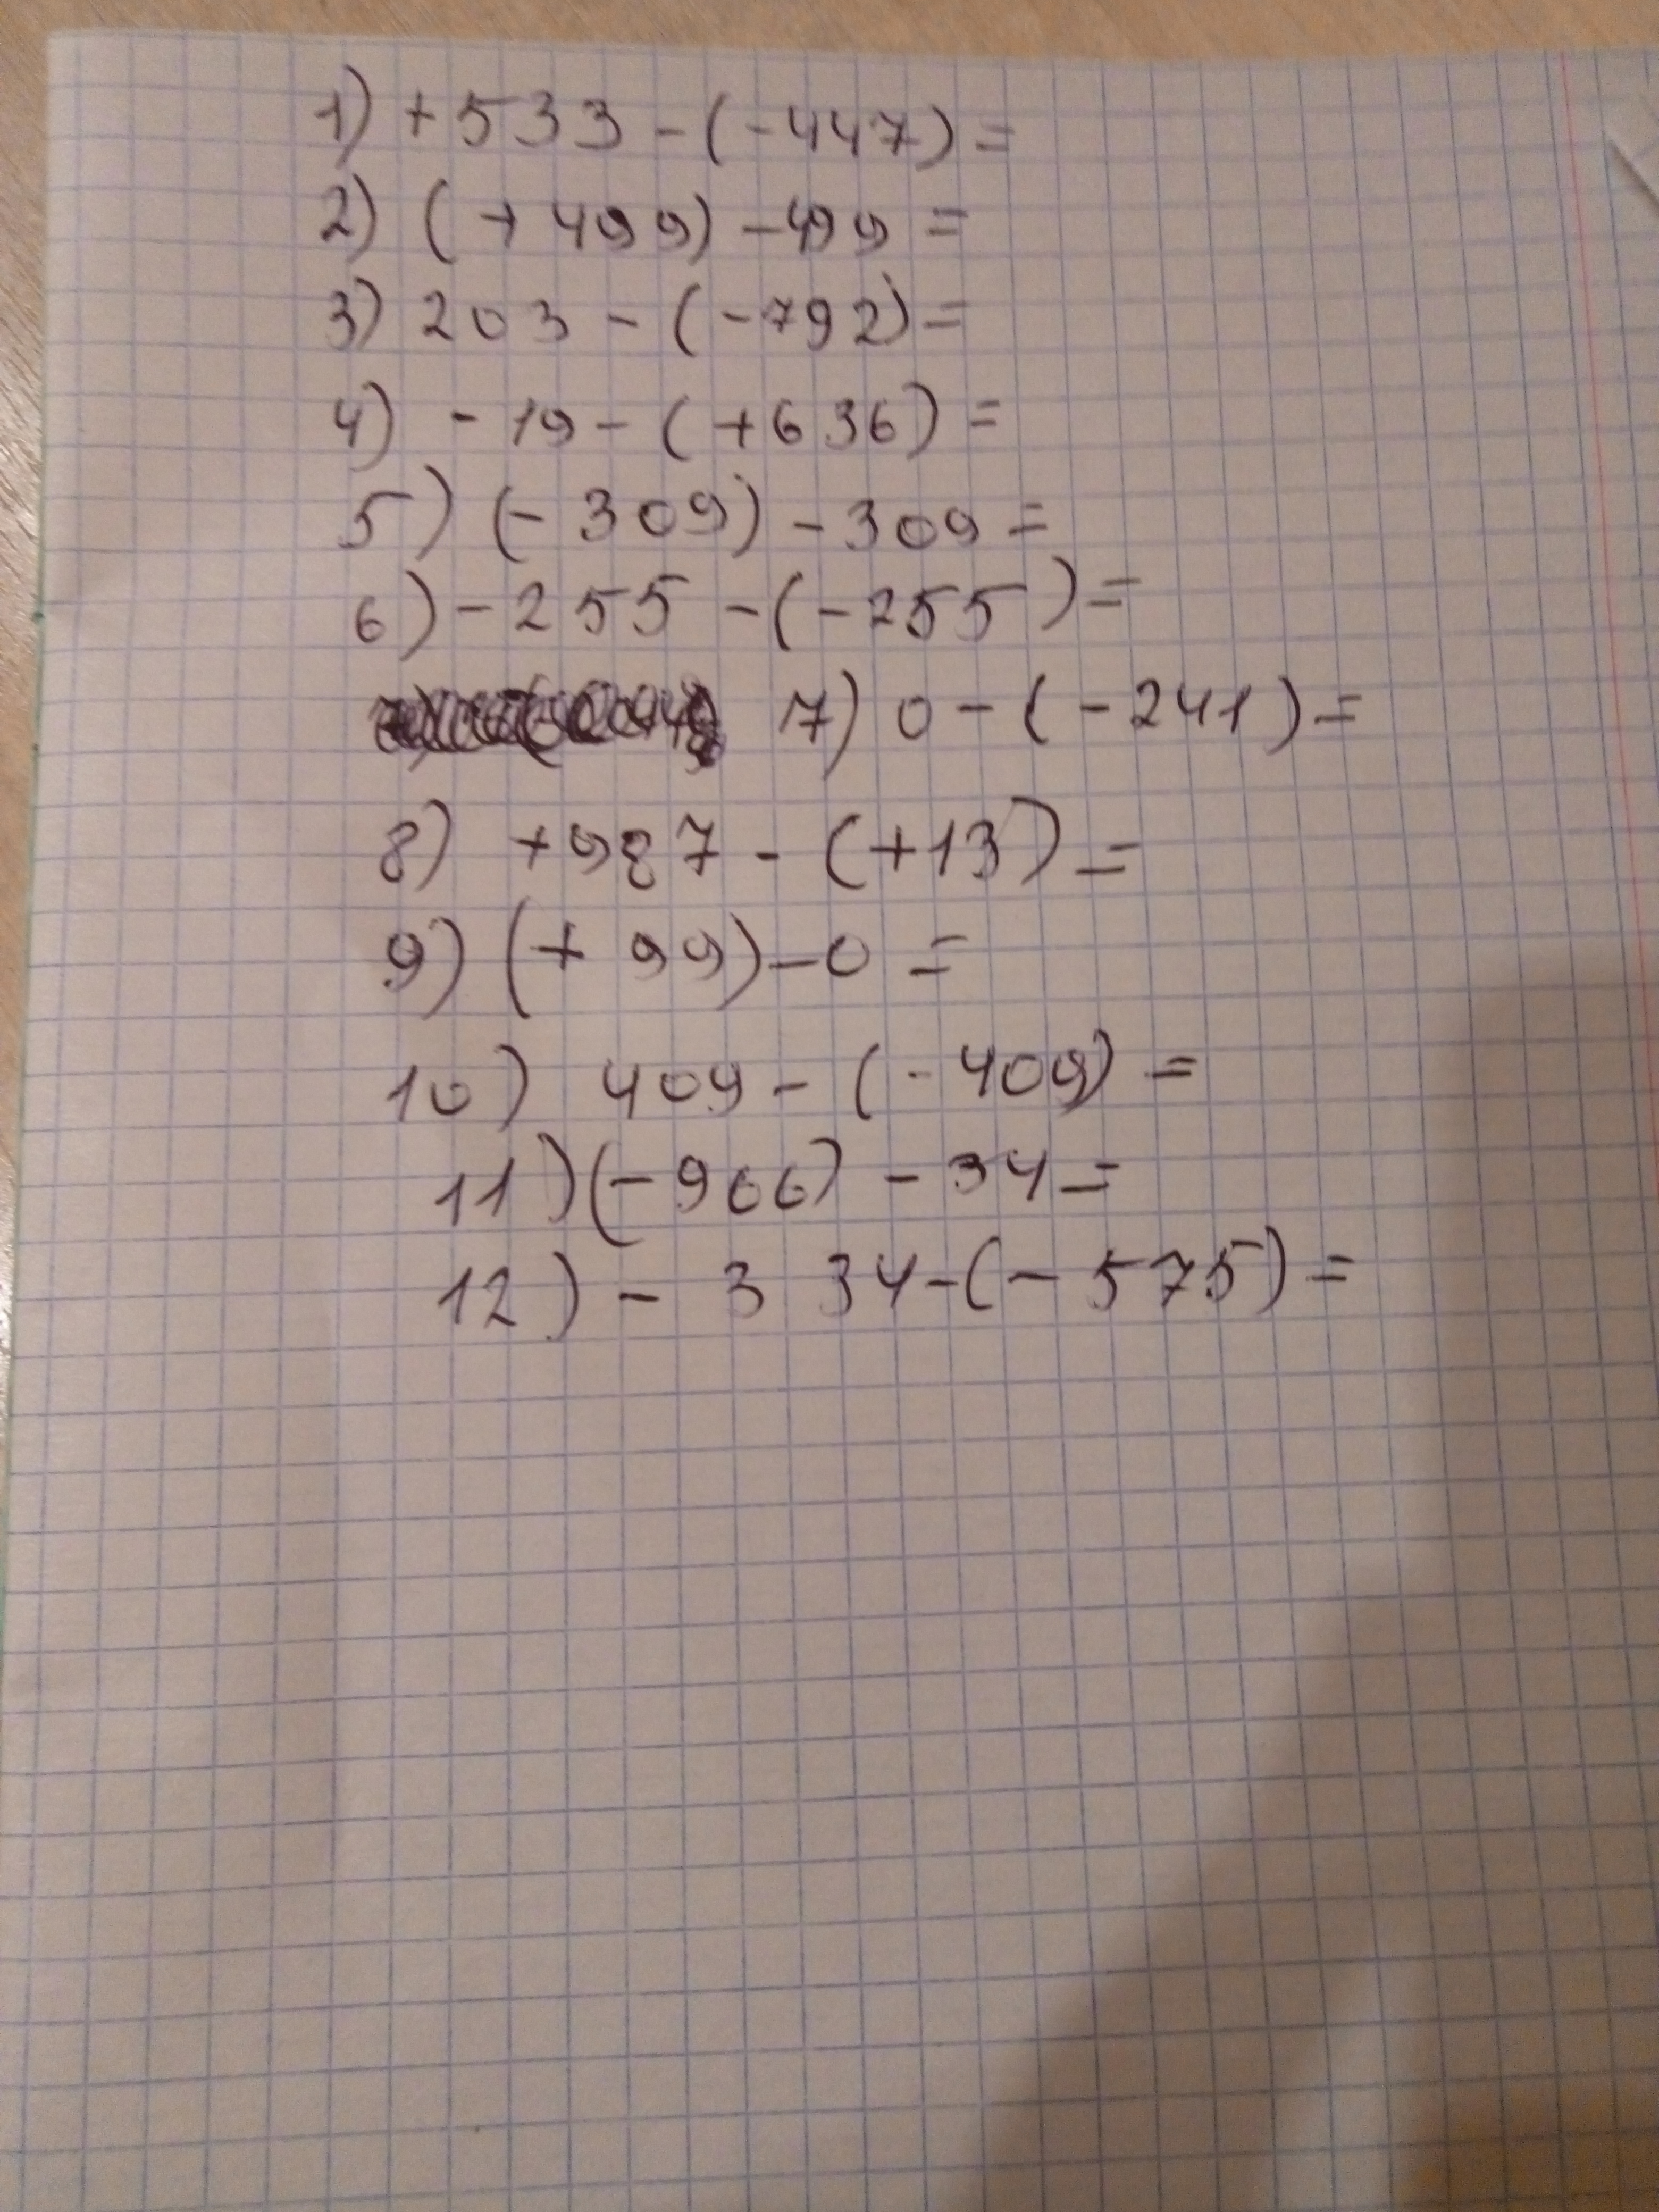 1) +533 - (-447) =
2) (+499) - 499 =
3) 203 - (-792) =
4) - 19 - (+636) =
5) (-309) - 309 =
6) - 255 - (-255) =
7) 0 - (-241) =
8) +987 - (+13) =
9) (+ 99) - 0 =
10) 409 - (-409) =
11) (-966) - 34 =
12) - 334 - (-575) =